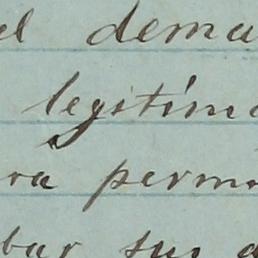 el dema
legitima
ra perma
bar sus a